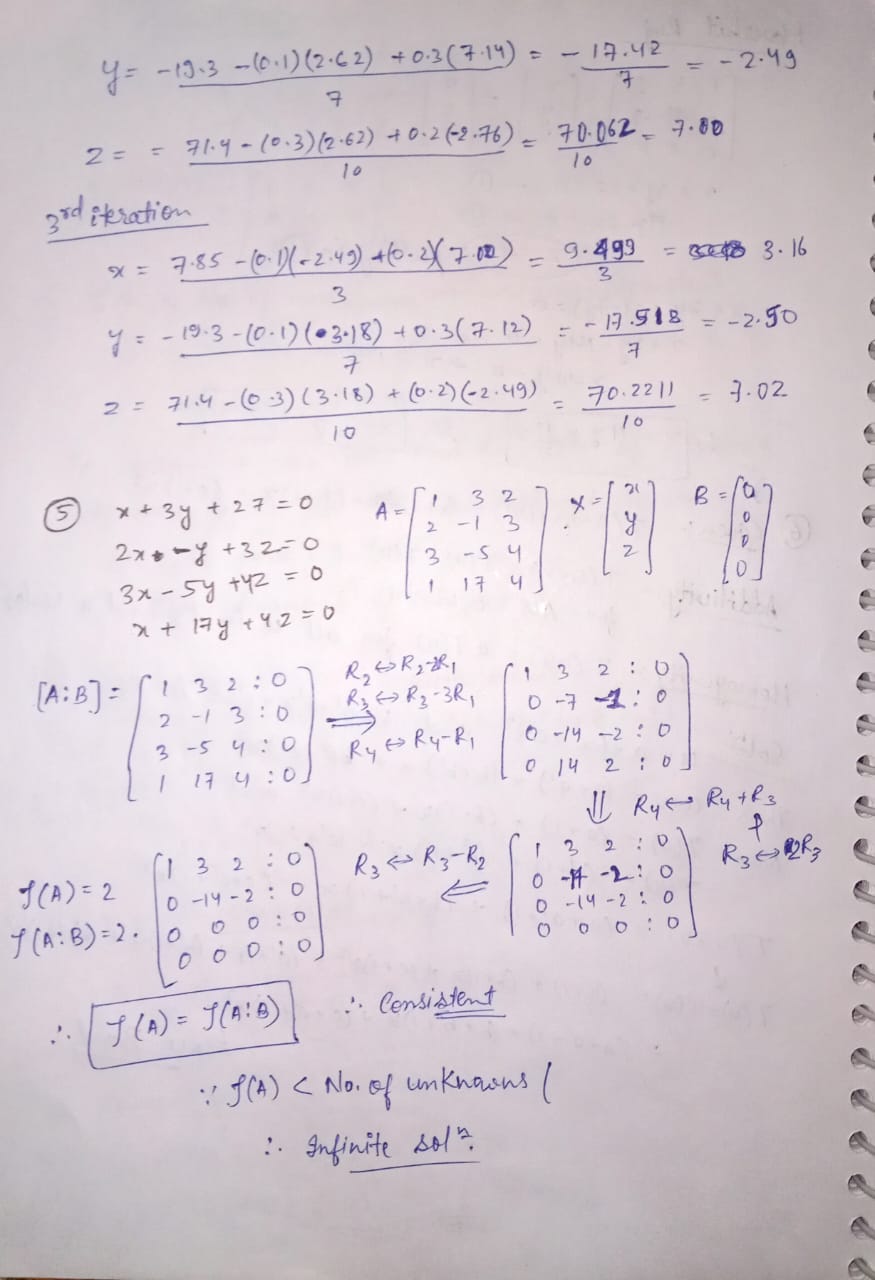 y = -19.3 - (0.1)(2.62) + 0.3(7.14) / 7 = -17.42 / 7 = -2.49
z = = 71.4 - (0.3)(2.62) + 0.2(-2.76) / 10 = 70.062 / 10 = 7.00
3rd iteration
x = 7.85 - (0.1)(-2.49) + (0.2)(7.02) / 3 = 9.499 / 3 = 3.16
y = -19.3 - (0.1)(3.18) + 0.3(7.12) / 7 = -17.518 / 7 = -2.50
z = 71.4 - (0.3)(3.18) + (0.2)(-2.49) / 10 = 70.2211 / 10 = 7.02
(5) x + 3y + 2z = 0 A = [1 3 2; 2 -1 3; 3 -5 4; 1 17 4] X = [x; y; z] B = [0; 0; 0; 0]
2x - y + 3z = 0
3x - 5y + 4z = 0
x + 17y + 4z = 0
[A:B] = [1 3 2 : 0; 2 -1 3 : 0; 3 -5 4 : 0; 1 17 4 : 0] R2 ↔ R2-2R1 R3 ↔ R3-3R1 ⇒ R4 ↔ R4-R1 [1 3 2 : 0; 0 -7 -1 : 0; 0 -14 -2 : 0; 0 14 2 : 0]
⇓ R4 ↔ R4+R3
[1 3 2 : 0; 0 -14 -2 : 0; 0 -14 -2 : 0; 0 0 0 : 0]
R3 ↔ R3-R2 ⇐
ρ(A) = 2 [1 3 2 : 0; 0 -14 -2 : 0; 0 0 0 : 0; 0 0 0 : 0]
ρ(A:B) = 2.
∴ ρ(A) = ρ(A:B) ∴ Consistent
∵ ρ(A) < No. of unknowns (
∴ Infinite solⁿ.